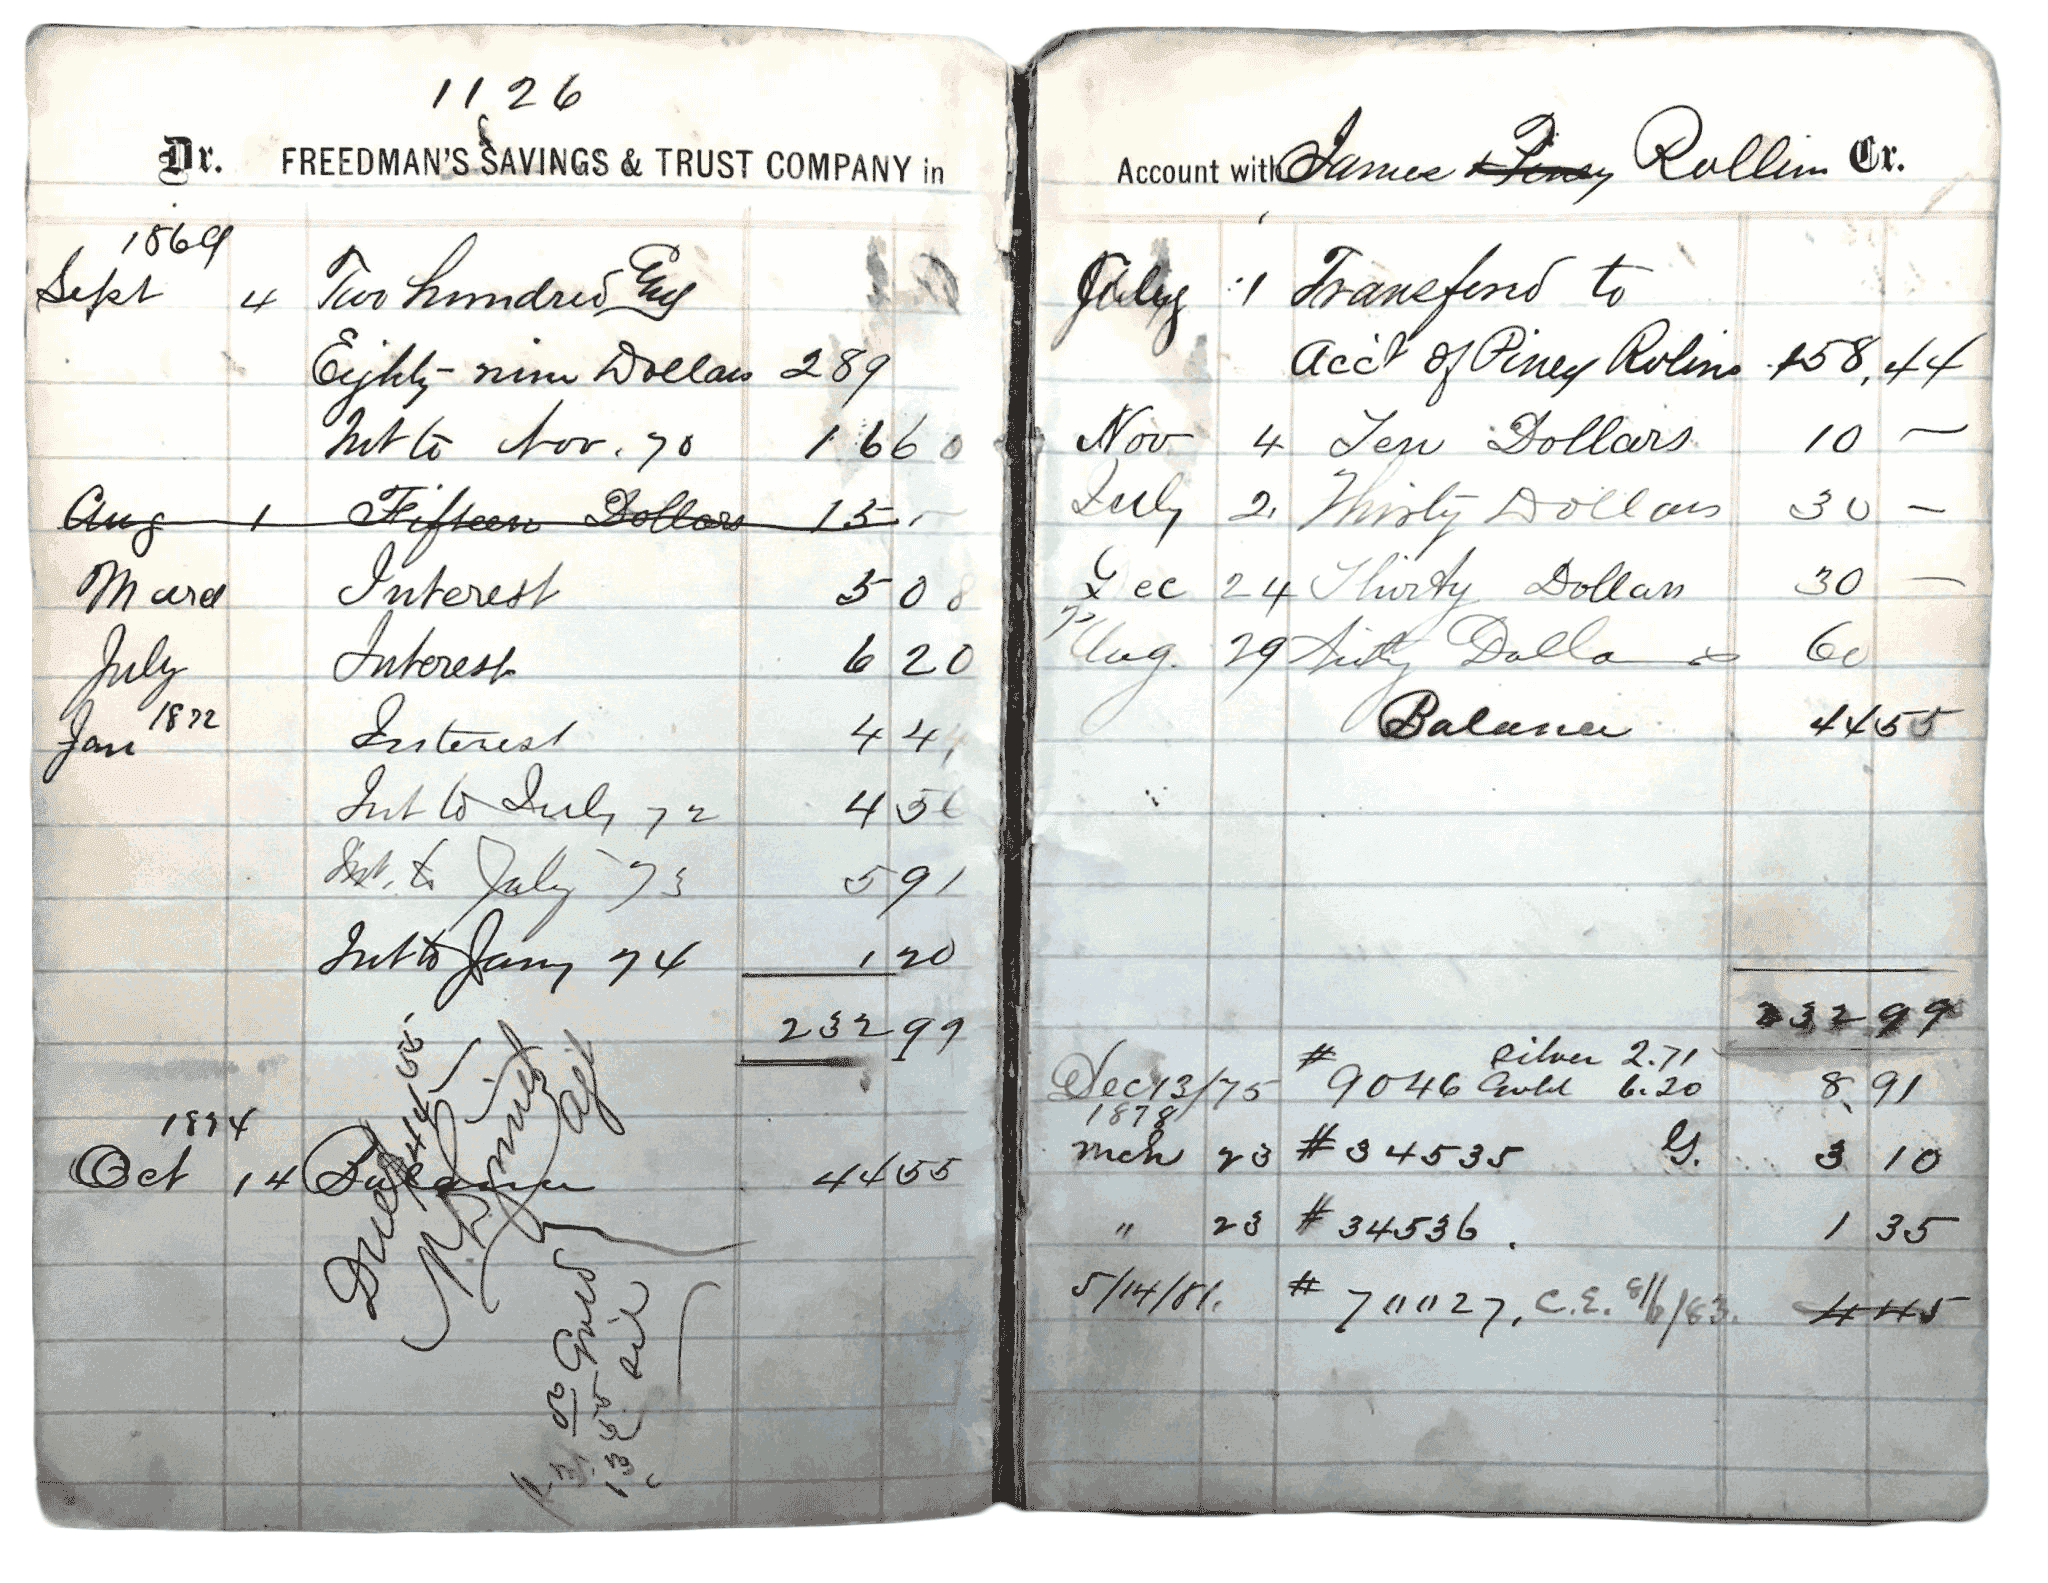 1126
Dr. FREEDMAN'S SAVINGS & TRUST COMPANY in
1869
Sept 4 Two hundred
Eighty-nine Dollars 289
Int to Nov. 70 16 60
Aug 1 Fifteen Dollars 15 -
March Interest 5 08
July Interest 6 20
Jan 1872 Interest 4 44
Int to July 72 4 56
Int. to July 73 5 91
Int to Jany 74 1 20
232 99
1874
Oct 14 Balance 44 55
Due 44 55
Gold
135 Sil
Account with James & Piney Rollins Cr.
July 1 Transferd to
Acc't of Piney Rolins 158,44
Nov 4 Ten Dollars 10 —
July 2. Thirty Dollars 30 —
Dec 24 Thirty Dollars 30 —
Aug. 29 Sixty Dollars 60
Balance 44 55
232 99
silver 2.71
Dec 13/75 #9046 Gold 6.20 8.91
1878
Mch 23 #34535 G. 3 10
" 23 #34536. 1 35
5/14/81. #70027, C.E. 8/6/83. 4 45